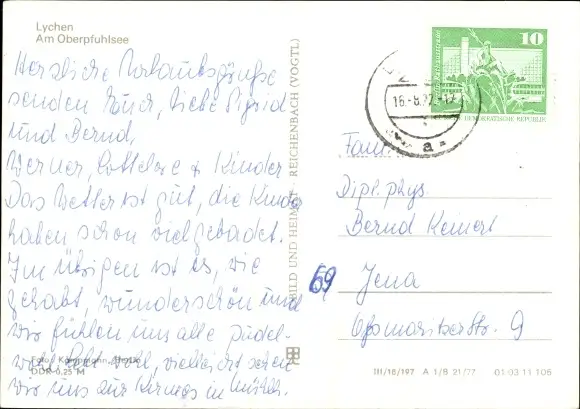 Lychen
Am Oberpfuhlsee
Herzliche Urlaubsgrüße
senden Euch, liebe Sigrid
und Bernd,
Werner, Lottelore & Kinder
Das Wetter ist gut, die Kinder
haben schon viel gebadet.
Im übrigen ist es, wie
gehabt, wunderschön und
wir fühlen uns alle pudel-
wohl. vielleicht sehen
wir uns zur Kirmes in
Foto:
DDR 0,25 M
BILD UND HEIMAT REICHENBACH (VOGTL)
10
DEUTSCHE DEMOKRATISCHE REPUBLIK
16.-8.77
a
Fam.
Dipl. phys
Bernd Keinert
69 Jena
Oßmaritzerstr. 9
III/16/197 A 1/B 21/77 01-03 11 106